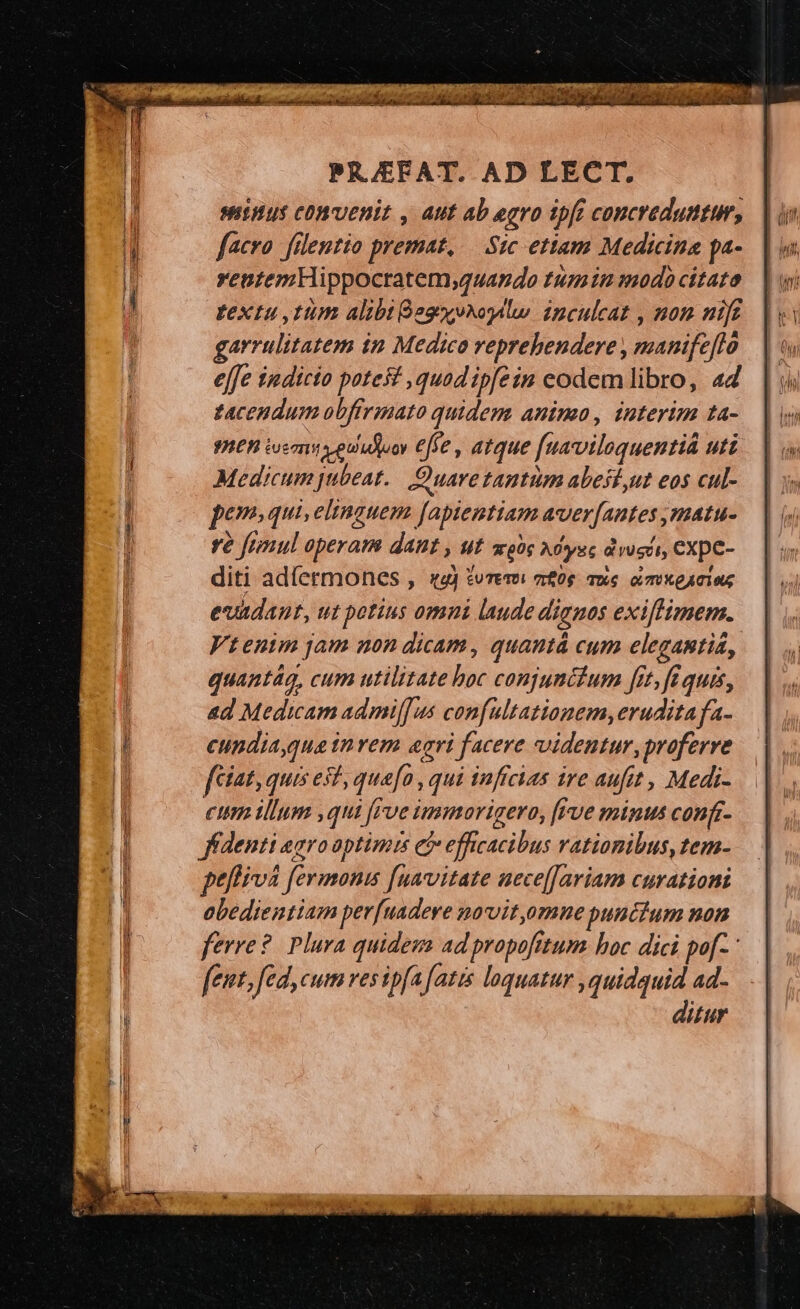 PRÆFAT. AD LECT.
minus convenit , aut ab ægro ipsi concreduntur,
sacro silentio premat, Sic etiam Medicinæ pa-
rentem Hippocratem, quando tùm in modò citato
textu , tùm alibi βραχυλογίlω inculcat , non nisi
garrulitatem in Medico reprehendere , manifesto
esse indicio potest , quod ipse in eodem libro, ad
tacendum obfirmato quidem animo, interim ta-
men esse , atque suaviloquentiâ uti
Medicum jubeat. Quare tantùm abest, ut eos cul-
pem, qui, elinguem sapientiam aversantes , matu-
rè simul operam dant , ut πρὸς λόγυς ἀνυσοὶ, expe-
diti ad sermones , καὶ ἔυπτοι πρὸς τὰς ἀποκρίσιας
evadant, ut potius omni laude dignos existimem.
Vtenim jam non dicam , quantâ cum elegantiâ,
quantâq, cum utilitate hoc conjunctum sit, si quis,
ad Medicam admissus consultationem, erudita fa-
cundia, quæ in rem ægri facere videntur, proferre
sciat, quis est, quæso , qui inficias ire ausit , Medi-
cum illum , qui sive immorigero, sive minus confi-
sidenti ægro optimis & efficacibus rationibus, tem-
pestivâ sermonis suavitate necessariam curationi
obedientiam persuadere novit, omne punctum non
ferre? Plura quidem ad propositum hoc dici pos-
sent, sed, cum res ipsa satis loquatur , quidquid ad-
ditur